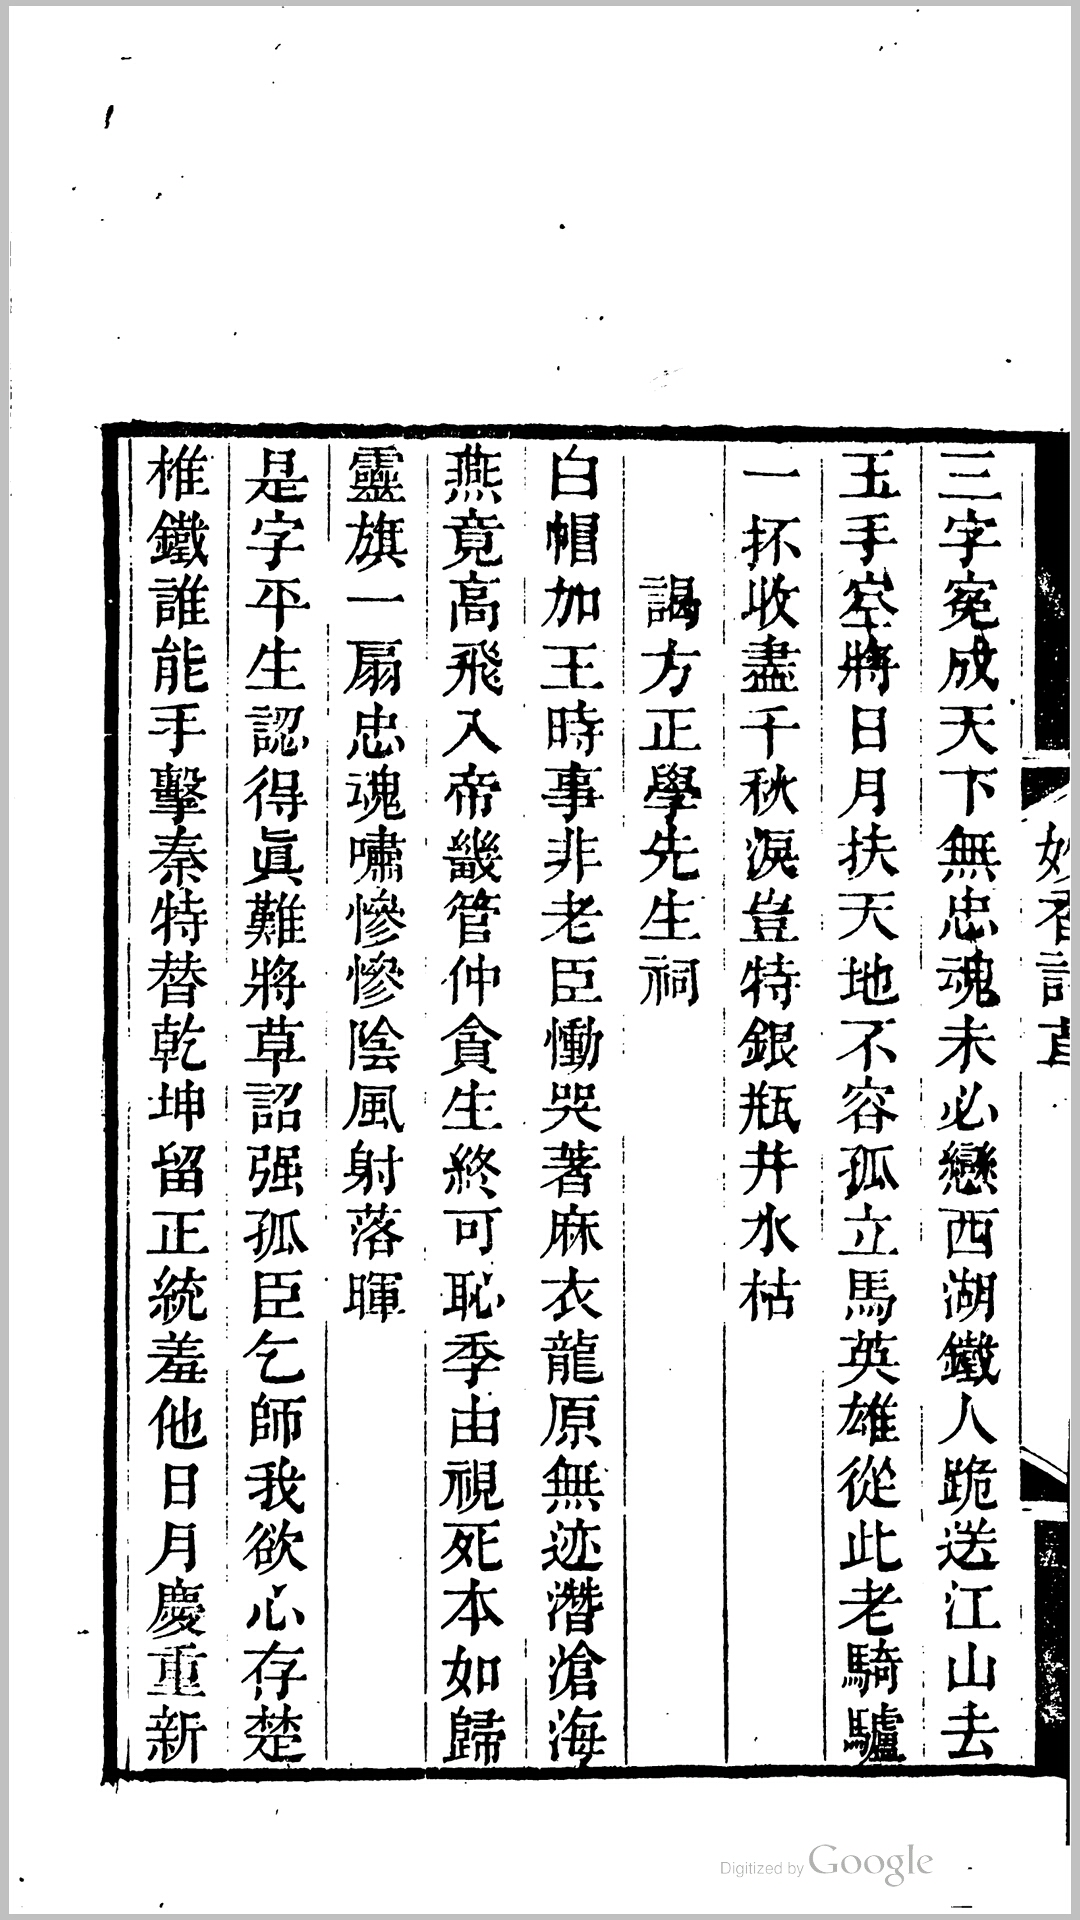 妙香詩草
三字冤成天下無忠魂未必戀西湖鐵人跪送江山去
玉手空將日月扶天地不容孤立馬英雄從此老騎驢
一抔收盡千秋淚豈特銀瓶井水枯
謁方正學先生祠
白帽加王時事非老臣慟哭著麻衣龍原無迹潛滄海
燕竟高飛入帝畿管仲貪生終可恥季由視死本如歸
靈旗一扇忠魂嘯慘慘陰風射落暉
是字平生認得眞難將草詔强孤臣乞師我欲心存楚
椎鐵誰能手擊秦特替乾坤留正統羞他日月慶重新
Digitized by Google